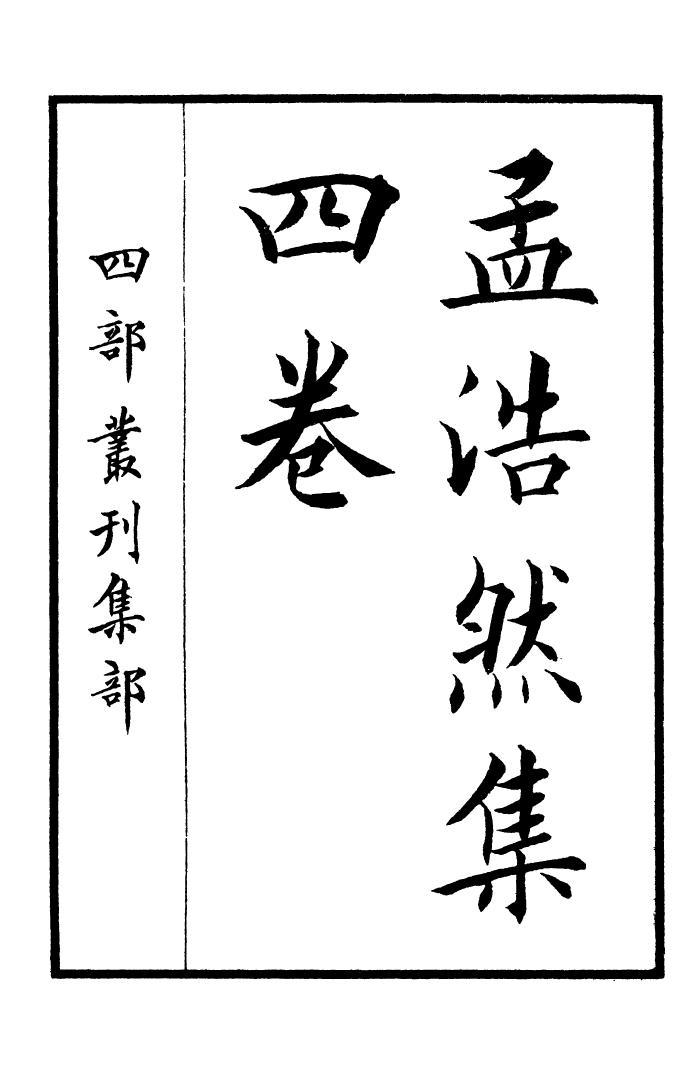 孟浩然集
四卷
四部叢刊集部